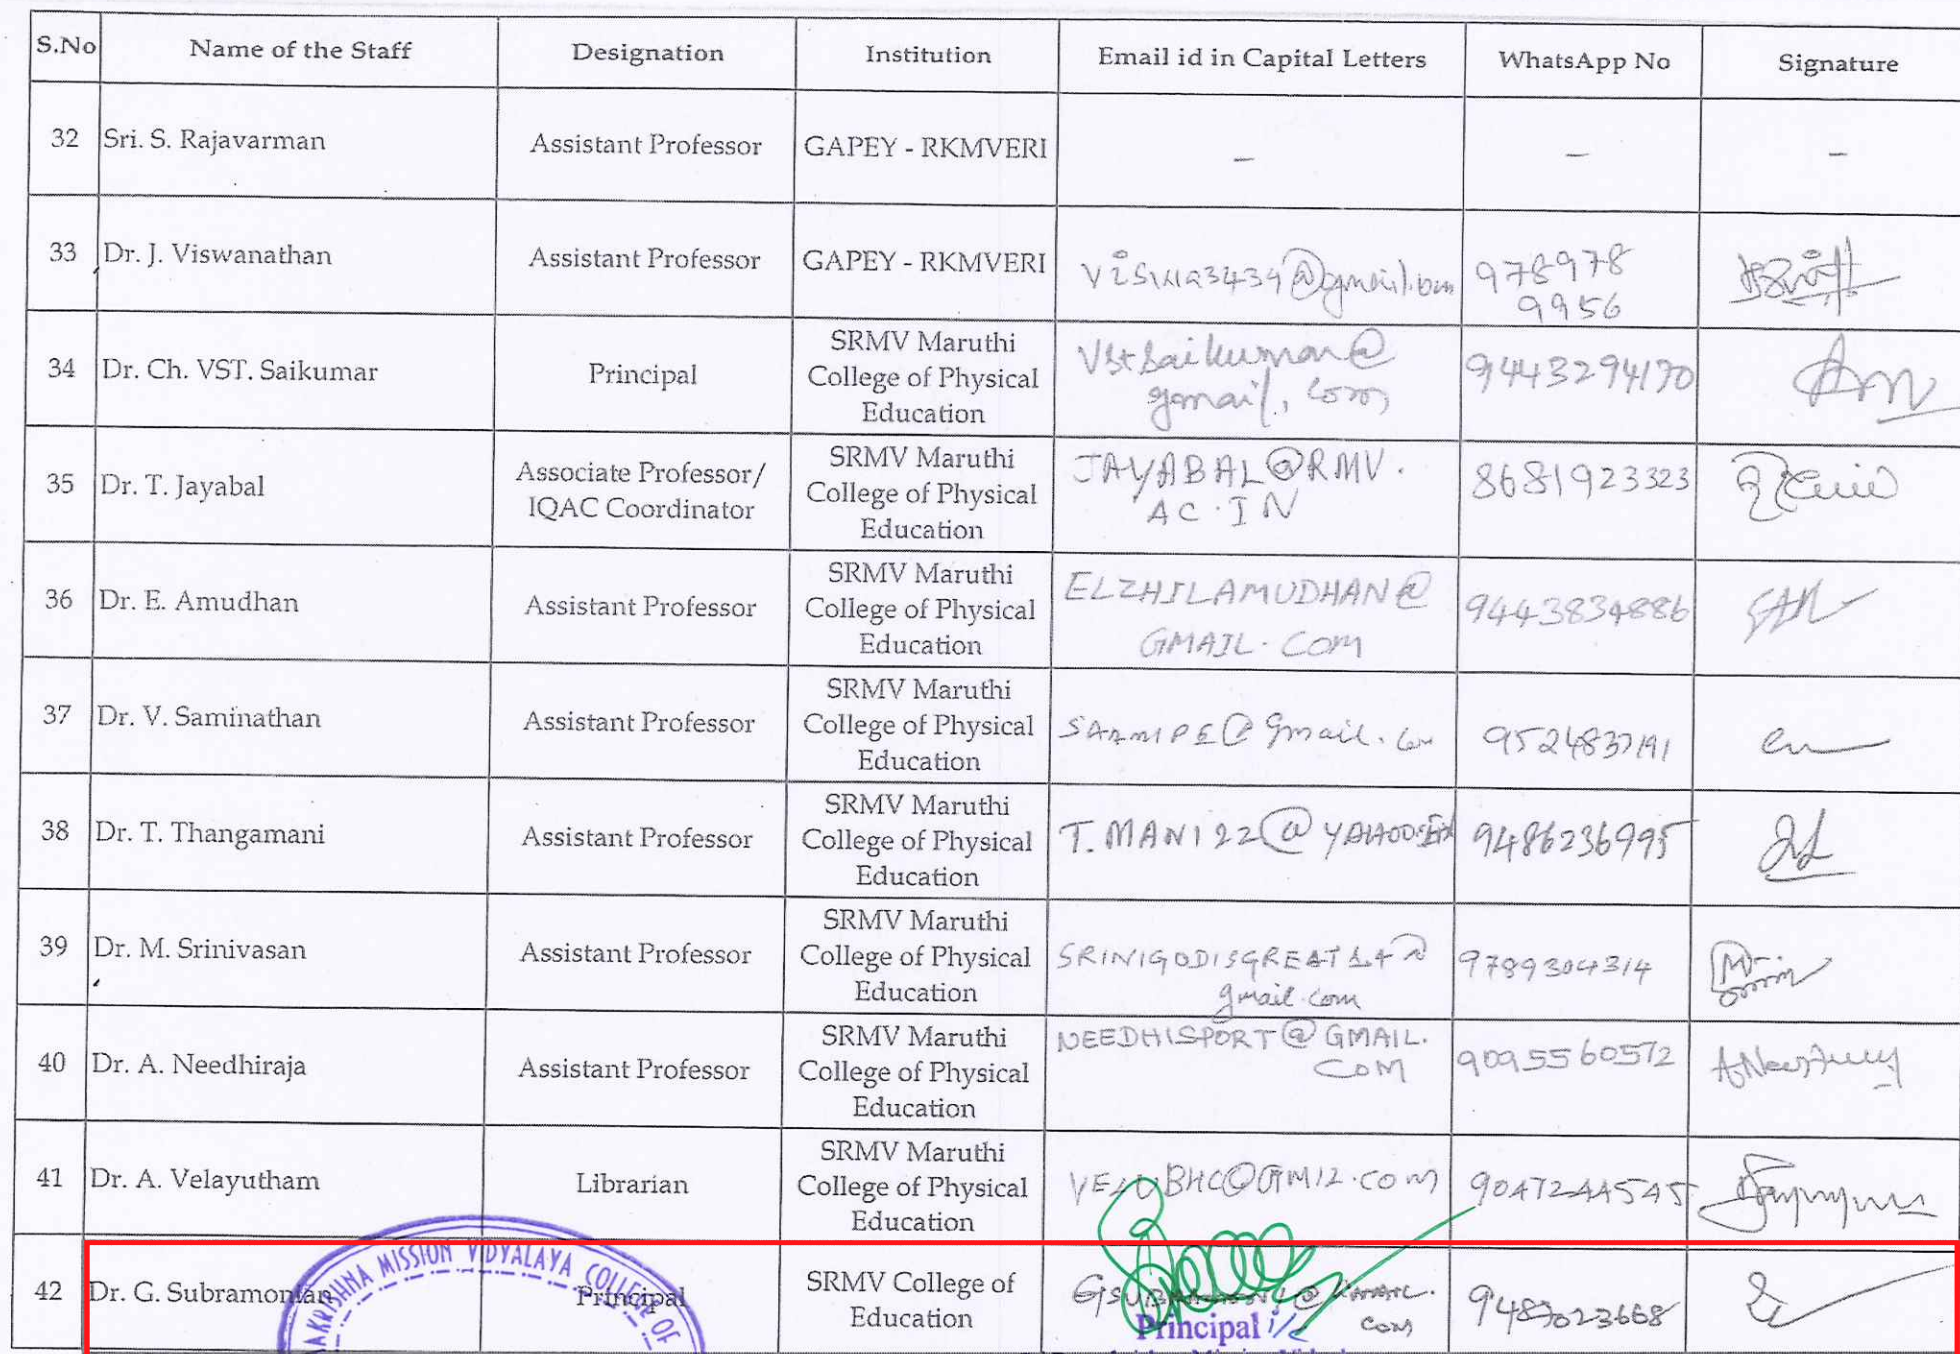 S.No Name of the Staff Designation Institution Email id in Capital Letters WhatsApp No Signature
32 Sri. S. Rajavarman Assistant Professor GAPEY - RKMVERI – – –
33 Dr. J. Viswanathan Assistant Professor GAPEY - RKMVERI 978978
9956
34 Dr. Ch. VST. Saikumar Principal SRMV Maruthi
College of Physical
Education
Vstsaikumar@
gmail.com
9443294170
35 Dr. T. Jayabal Associate Professor/
IQAC Coordinator
SRMV Maruthi
College of Physical
Education
JAYABAL@RMV.
AC.IN
8681923323
36 Dr. E. Amudhan Assistant Professor SRMV Maruthi
College of Physical
Education
ELZHILAMUDHAN@
GMAIL.COM
9443834886
37 Dr. V. Saminathan Assistant Professor SRMV Maruthi
College of Physical
Education
9524837191
38 Dr. T. Thangamani Assistant Professor SRMV Maruthi
College of Physical
Education
9486236995
39 Dr. M. Srinivasan Assistant Professor SRMV Maruthi
College of Physical
Education
SRINIGODISGREAT14@
gmail.com
9789304314
40 Dr. A. Needhiraja Assistant Professor SRMV Maruthi
College of Physical
Education
NEEDHISPORT@GMAIL.
COM
9095560572
41 Dr. A. Velayutham Librarian SRMV Maruthi
College of Physical
Education
9047244545
42 Dr. G. Subramonian Principal SRMV College of
Education
com
9487023668
AKRISHNA MISSION VIDYALAYA COLLEGE OF
Principal i/c